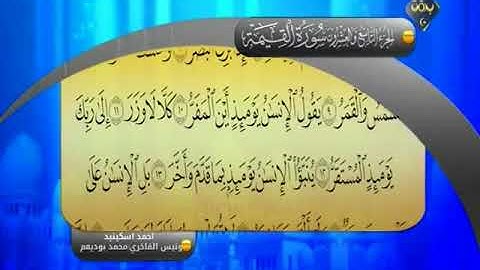 الجزء التاسع والعشرون سورة القيمة
شمس والقمر ٩ يقول الإنسان يومئذ أين المفر ١٠ كلا لا وزر ١١ إلى ربك
يومئذ المستقر ١٢ ينبؤا الإنسان يومئذ بما قدم وأخر ١٣ بل الإنسان على
احمد اسكينيد
ونيس الفاخري محمد بوديهم